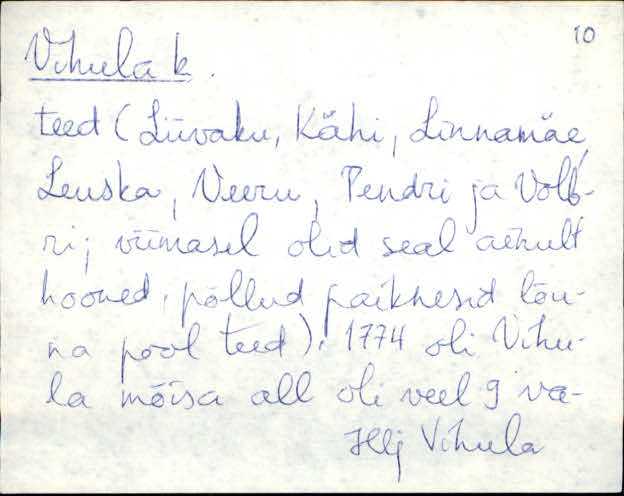 10
Vihula k.
teed (Liivaku, Kähi, Linnamäe,
Leuska, Veeru, Pendri ja Volb-
ri; viimasel olid seal ainult
hooned, põllud paiknesid lõu-
na pool teed). 1774 oli Vihu-
la mõisa all oli veel 9 va-
Hlj Vihula